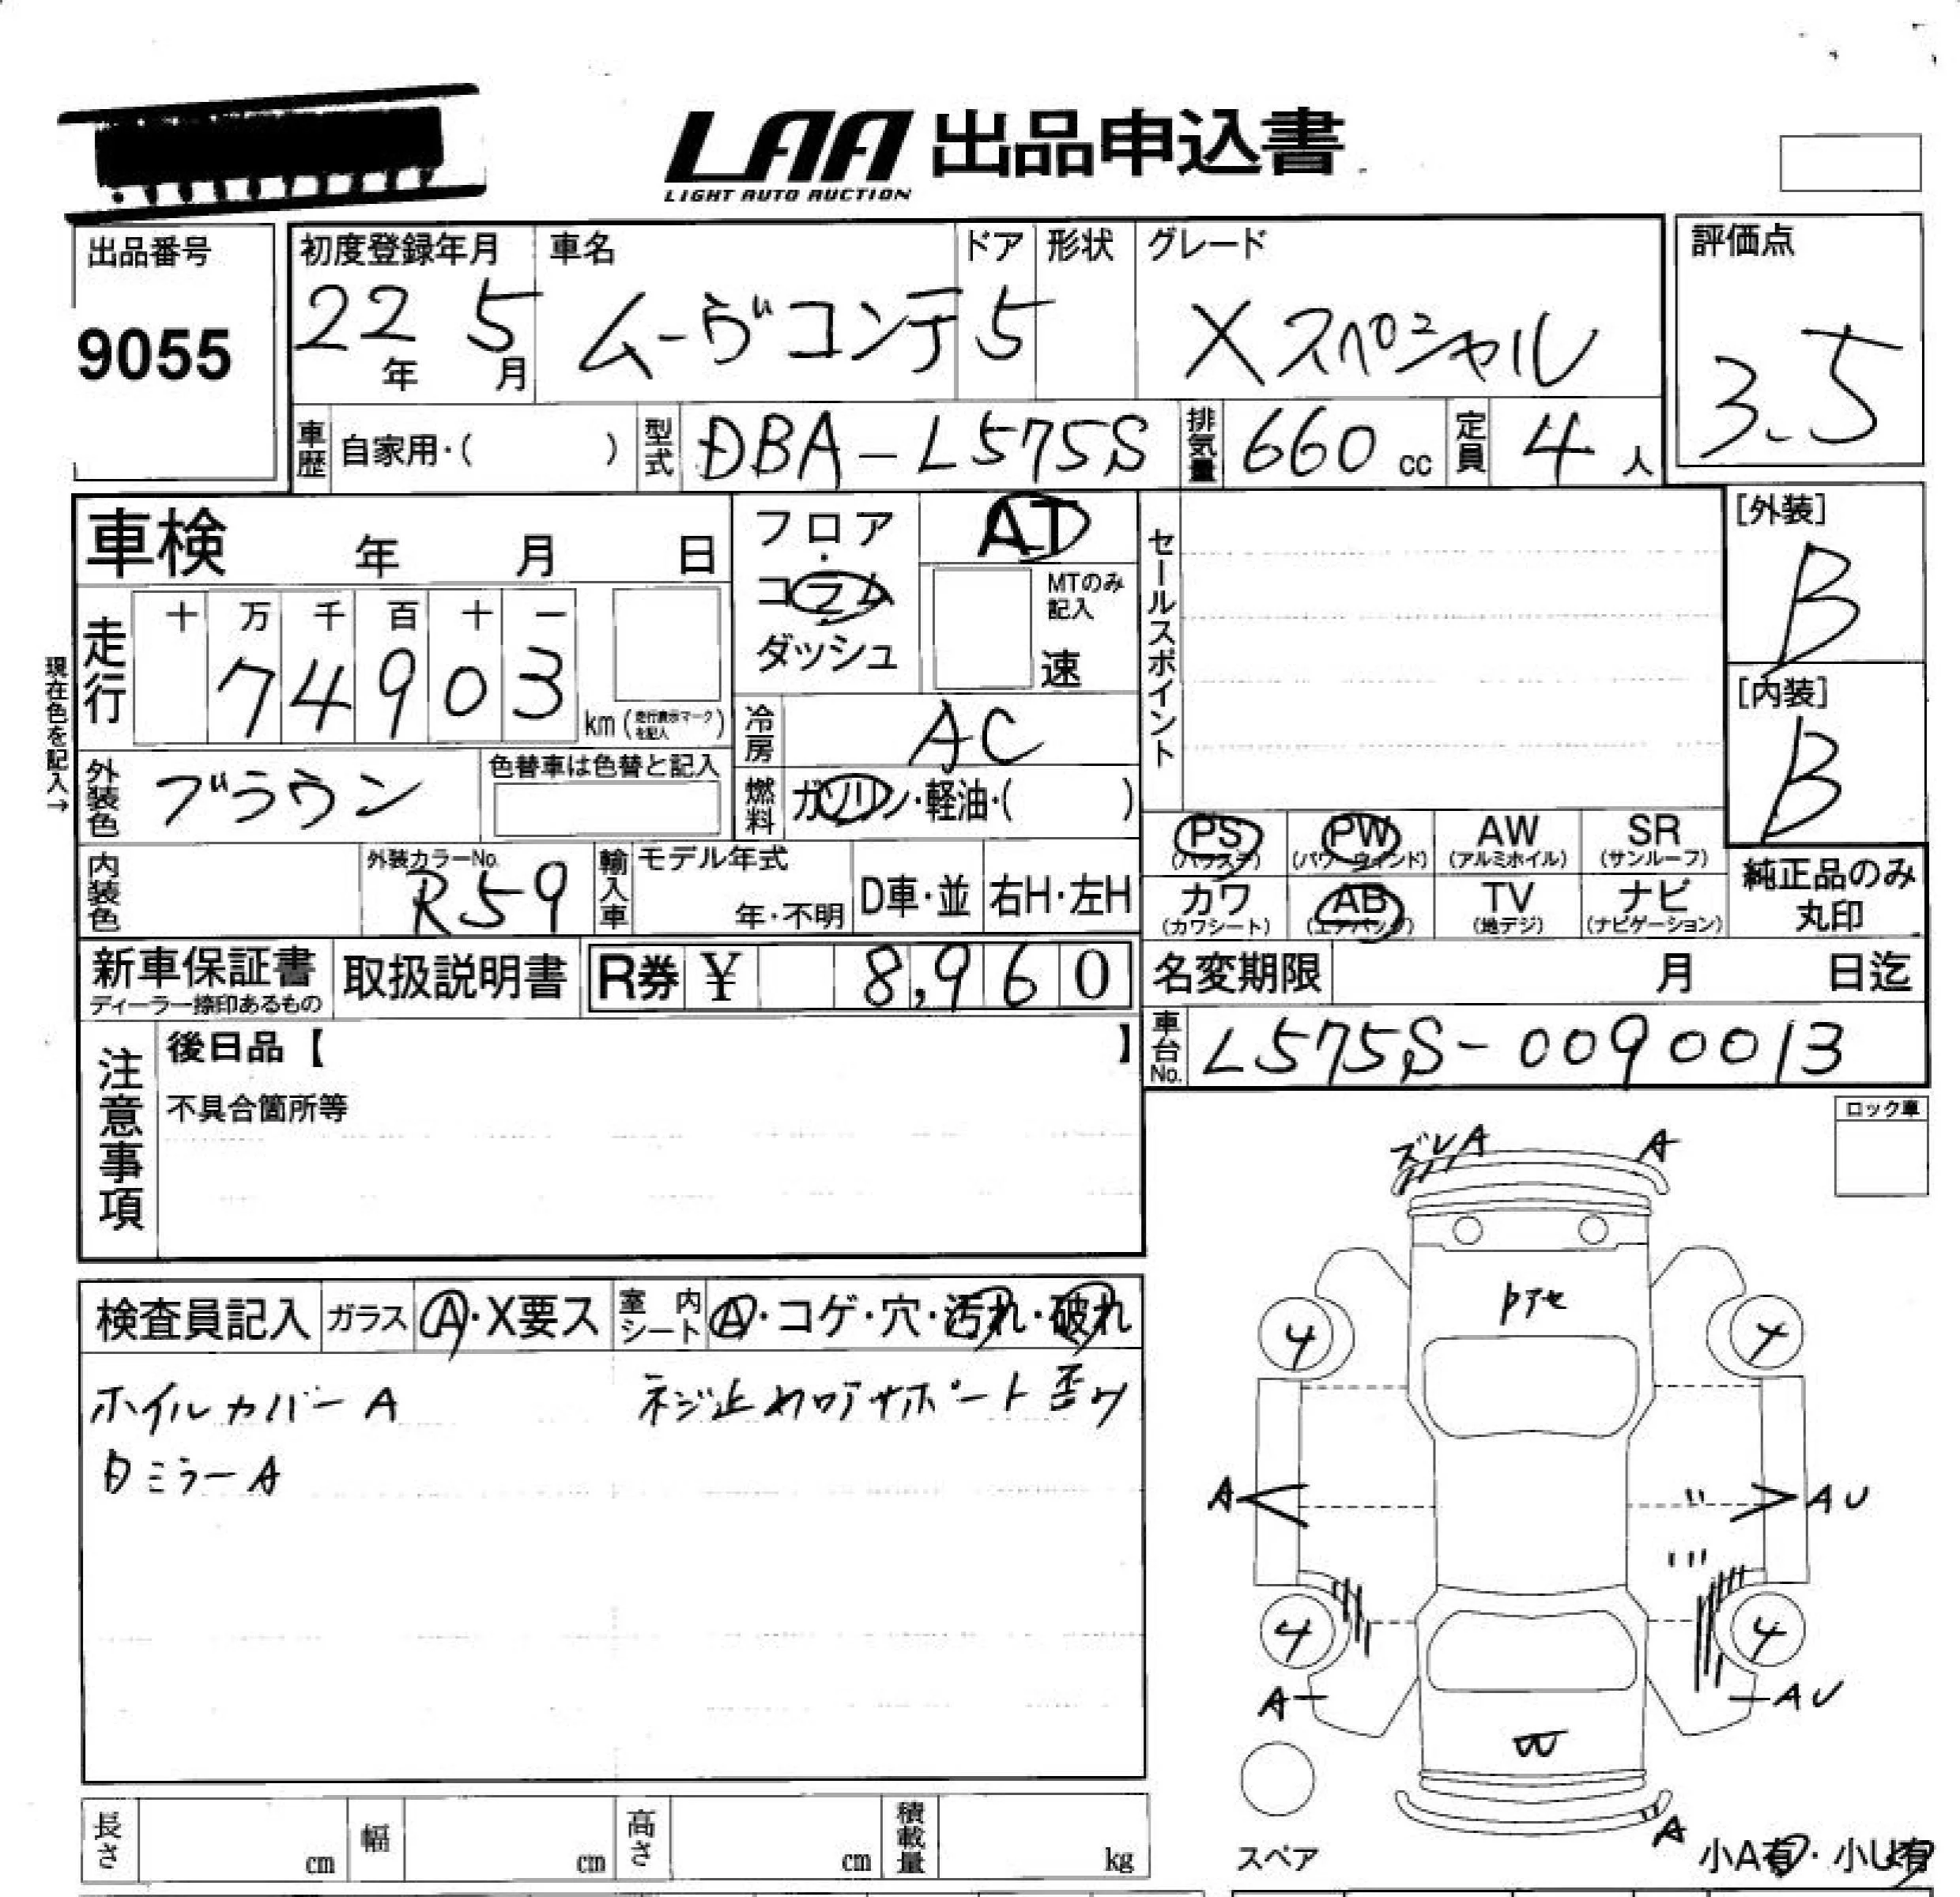 LAA 出品申込書
LIGHT AUTO AUCTION
出品番号
9055
初度登録年月 車名 ドア 形状 グレード
22年 5月 ムーヴコンテ 5 Xスペシャル
評価点
3.5
車歴 自家用・( ) 型式 DBA-L575S 排気量 660 cc 定員 4 人
車検 年 月 日
フロア・コラム ダッシュ
AT
MTのみ記入
速
セールスポイント
[外装]
B
[内装]
B
現在色を記入→
走行 十 万 千 百 十 一
74903 km (走行表示マークを記入)
冷房 AC
外装色 ブラウン
色替車は色替と記入
燃料 ガソリン・軽油・( )
内装色
外装カラーNo. R59
輸入車 モデル年式 年・不明 D車・並 右H・左H
PS (パワステ) PW (パワーウィンド) AW (アルミホイル) SR (サンルーフ)
カワ (カワシート) AB (エアバッグ) TV (地デジ) ナビ (ナビゲーション)
純正品のみ丸印
新車保証書 ディーラー捺印あるもの 取扱説明書 R券 ¥ 8,960
名変期限 月 日迄
車台No. L575S-0090013
注意事項
後日品【 】
不具合箇所等
ロック車
検査員記入 ガラス A・X要ス 室内シート A・コゲ・穴・汚れ・破れ
ホイルカバーA ネジ止めロアサポート歪み
ミラーA
ズレA A
4 4
A AU
4 4
A AU
A
スペア
小A有・小U有
長さ cm 幅 cm 高さ cm 積載量 kg